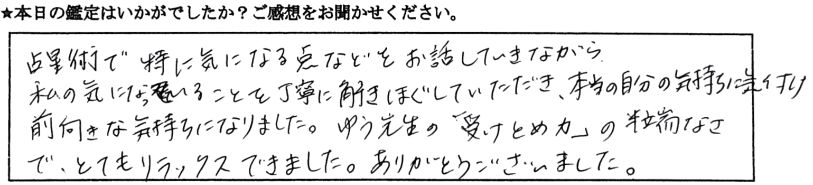 ★本日の鑑定はいかがでしたか？ご感想をお聞かせください。
占星術で特に気になる点などをお話していきながら
私の気になっていることを丁寧に解きほぐしていただき、本当の自分の気持ちに気付け
前向きな気持ちになりました。ゆう先生の「受けとめ力」の半端なさ
で、とてもリラックスできました。ありがとうございました。